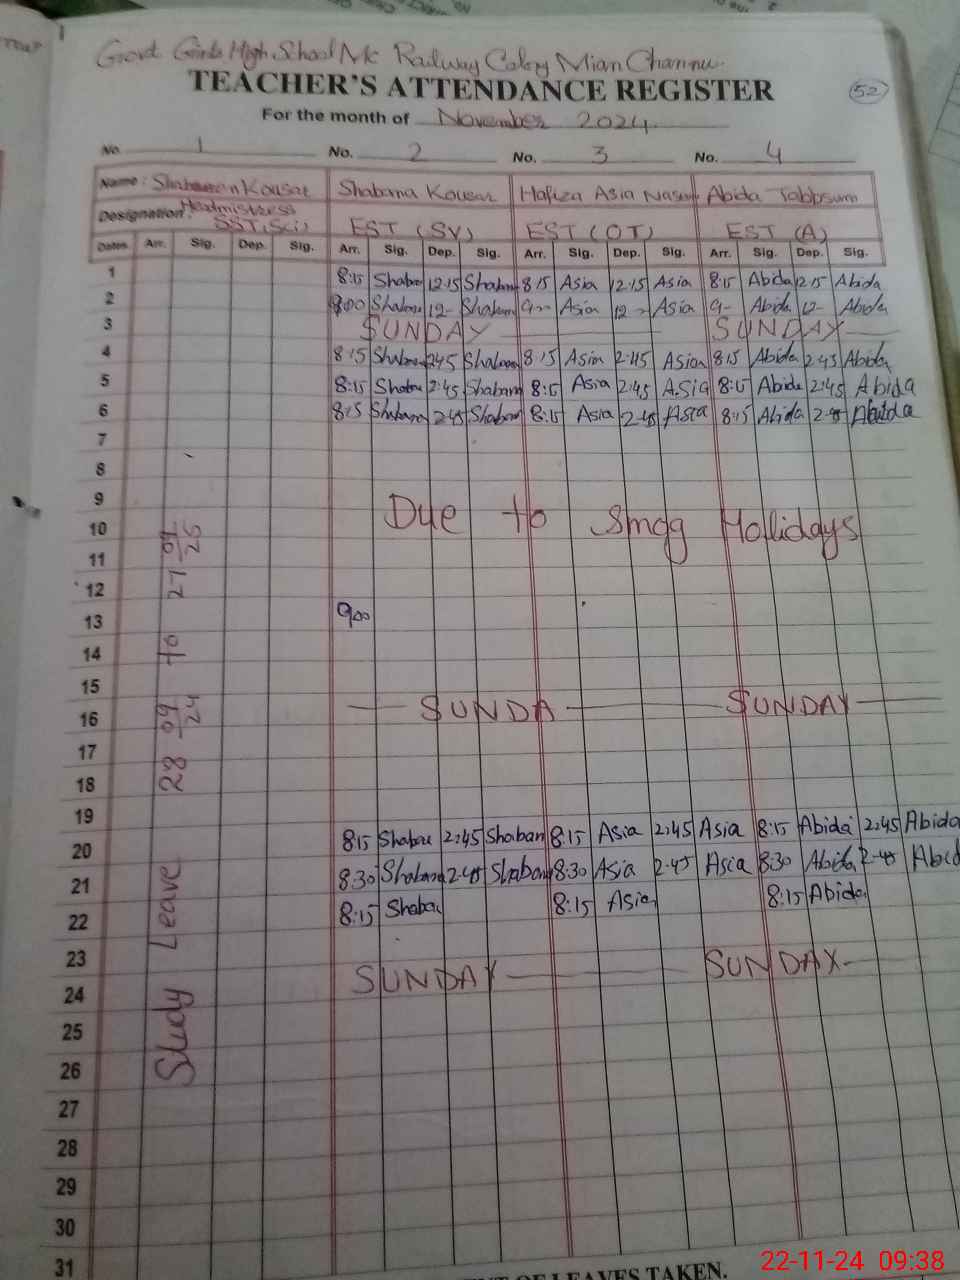 Govt Girls High School Mc Railway Colony Mian Channu.
TEACHER'S ATTENDANCE REGISTER
52
For the month of November 2024
No. 1 No. 2 No. 3 No. 4
Name: Kousar Shabana Kousar Hafiza Asia Abida Tabbsum
Designation: Headmistress SST(Sci) EST (SV) EST (OT) EST (A)
Dates Arr. Sig. Dep. Sig. Arr. Sig. Dep. Sig. Arr. Sig. Dep. Sig. Arr. Sig. Dep. Sig.
1 8:15 Shaban 12:15 Shabam 8:15 Asia 12:15 Asia 8:15 Abida 12:15 Abida
2 9:00 Shabam 12- Shabam 9- Asia 12- Asia 9- Abida 12- Abida
3 SUNDAY SUNDAY
4 8:15 Shabam 2:45 Shabam 8:15 Asia 2:45 Asia 8:15 Abida 2:45 Abida
5 8:15 Shaba 2:45 Shabam 8:15 Asia 2:45 Asia 8:15 Abida 2:45 Abida
6 8:15 Shabana 2:45 Shabam 8:15 Asia 2:45 Asia 8:15 Abida 2:45 Abida
7
8
9
10 Due to Smog Hollidays
11
12
13 900
14
15
16 SUNDA SUNDAY
17
18
19
20 8:15 Shaba 2:45 Shaban 8:15 Asia 2:45 Asia 8:15 Abida 2:45 Abida
21 8:30 Shabana 2:45 Shabam 8:30 Asia 2:45 Asia 8:30 Abida 2:45 Abid
22 8:15 Shaba 8:15 Asia 8:15 Abida
23
24 SUNDAY SUNDAY
25
26
27
28
29
30
31
Study Leave 28 09/24 to 27 09/26
OF LEAVES TAKEN.
22-11-24 09:38